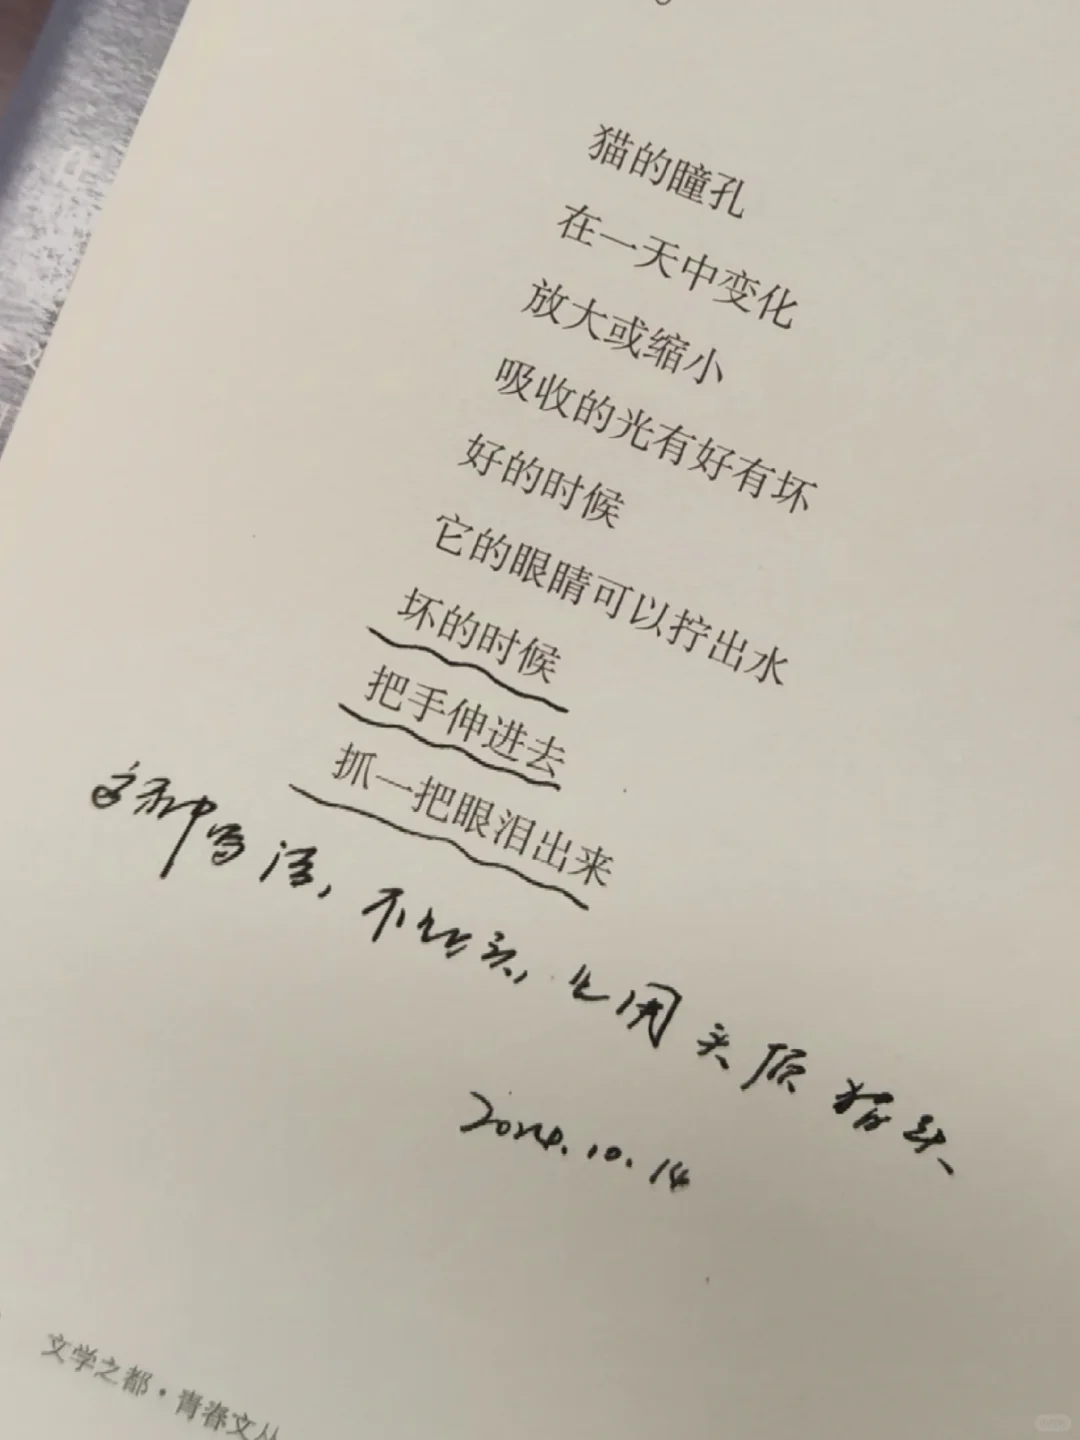 猫的瞳孔
在一天中变化
放大或缩小
吸收的光有好有坏
好的时候
它的眼睛可以拧出水
坏的时候
把手伸进去
抓一把眼泪出来
这种写法,不
2024.10.14
文学之都·青春文丛